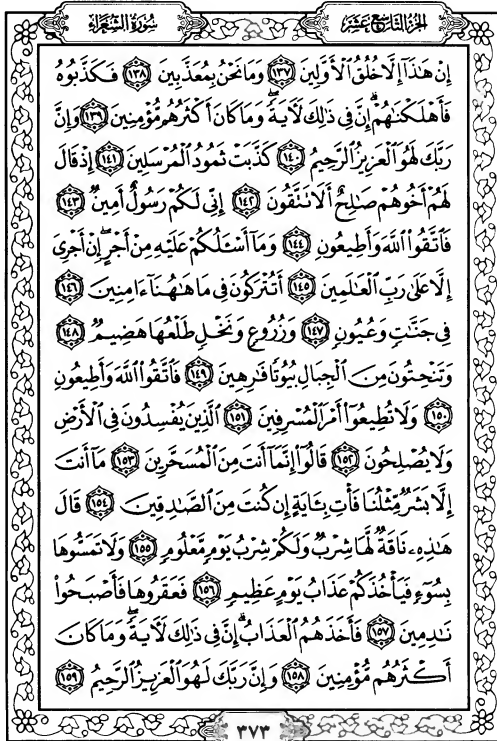 سُورَةُ الشُّعَرَاءِ
الجُزْءُ التَّاسِعُ عَشَرَ
إِنْ هَٰذَآ إِلَّا خُلُقُ ٱلْأَوَّلِينَ ١٣٧ وَمَا نَحْنُ بِمُعَذَّبِينَ ١٣٨ فَكَذَّبُوهُ
فَأَهْلَكْنَٰهُمْ ۗ إِنَّ فِى ذَٰلِكَ لَءَايَةً ۖ وَمَا كَانَ أَكْثَرُهُم مُّؤْمِنِينَ ١٣٩ وَإِنَّ
رَبَّكَ لَهُوَ ٱلْعَزِيزُ ٱلرَّحِيمُ ١٤٠ كَذَّبَتْ ثَمُودُ ٱلْمُرْسَلِينَ ١٤١ إِذْ قَالَ
لَهُمْ أَخُوهُمْ صَٰلِحٌ أَلَا تَتَّقُونَ ١٤٢ إِنِّى لَكُمْ رَسُولٌ أَمِينٌ ١٤٣
فَٱتَّقُوا۟ ٱللَّهَ وَأَطِيعُونِ ١٤٤ وَمَآ أَسْـَٔلُكُمْ عَلَيْهِ مِنْ أَجْرٍ ۖ إِنْ أَجْرِىَ
إِلَّا عَلَىٰ رَبِّ ٱلْعَٰلَمِينَ ١٤٥ أَتُتْرَكُونَ فِى مَا هَٰهُنَآ ءَامِنِينَ ١٤٦
فِى جَنَّٰتٍ وَعُيُونٍ ١٤٧ وَزُرُوعٍ وَنَخْلٍ طَلْعُهَا هَضِيمٌ ١٤٨
وَتَنْحِتُونَ مِنَ ٱلْجِبَالِ بُيُوتًا فَٰرِهِينَ ١٤٩ فَٱتَّقُوا۟ ٱللَّهَ وَأَطِيعُونِ
١٥٠ وَلَا تُطِيعُوٓا۟ أَمْرَ ٱلْمُسْرِفِينَ ١٥١ ٱلَّذِينَ يُفْسِدُونَ فِى ٱلْأَرْضِ
وَلَا يُصْلِحُونَ ١٥٢ قَالُوٓا۟ إِنَّمَآ أَنتَ مِنَ ٱلْمُسَحَّرِينَ ١٥٣ مَآ أَنتَ
إِلَّا بَشَرٌ مِّثْلُنَا فَأْتِ بِـَٔايَةٍ إِن كُنتَ مِنَ ٱلصَّٰدِقِينَ ١٥٤ قَالَ
هَٰذِهِۦ نَاقَةٌ لَّهَا شِرْبٌ وَلَكُمْ شِرْبُ يَوْمٍ مَّعْلُومٍ ١٥٥ وَلَا تَمَسُّوهَا
بِسُوٓءٍ فَيَأْخُذَكُمْ عَذَابُ يَوْمٍ عَظِيمٍ ١٥٦ فَعَقَرُوهَا فَأَصْبَحُوا۟
نَٰدِمِينَ ١٥٧ فَأَخَذَهُمُ ٱلْعَذَابُ ۗ إِنَّ فِى ذَٰلِكَ لَءَايَةً ۖ وَمَا كَانَ
أَكْثَرُهُم مُّؤْمِنِينَ ١٥٨ وَإِنَّ رَبَّكَ لَهُوَ ٱلْعَزِيزُ ٱلرَّحِيمُ ١٥٩
٣٧٣